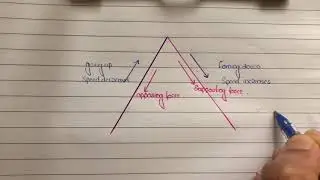 going up
Speed decreases
opposing force
Coming down
Speed increases
Supporting force